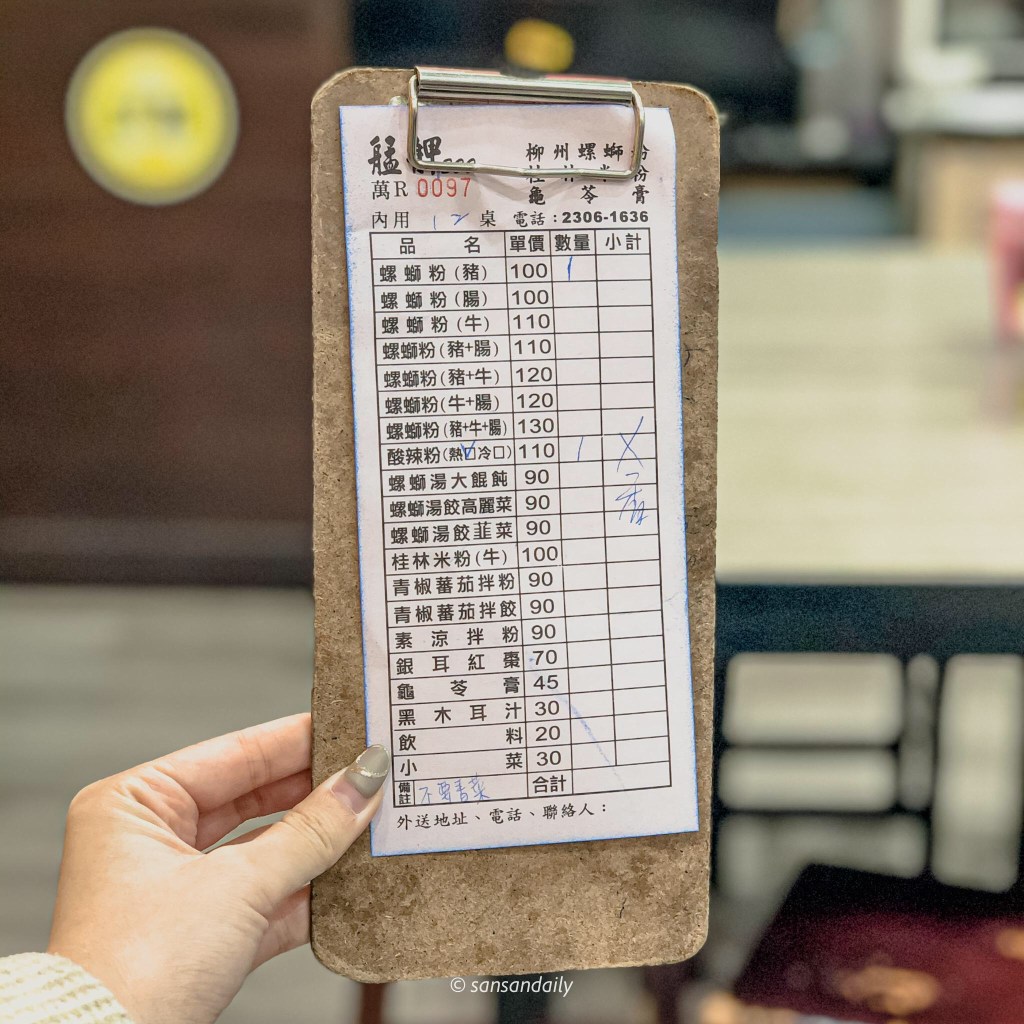 艋舺
柳州螺螄粉
桂林米粉
龜苓膏
萬R 0097
內用 12 桌 電話：2306-1636
品名 單價 數量 小計
螺螄粉(豬) 100 1
螺螄粉(腸) 100
螺螄粉(牛) 110
螺螄粉(豬+腸) 110
螺螄粉(豬+牛) 120
螺螄粉(牛+腸) 120
螺螄粉(豬+牛+腸) 130
酸辣粉(熱☑冷□) 110 1 X
螺螄湯大餛飩 90
螺螄湯餃高麗菜 90
螺螄湯餃韮菜 90
桂林米粉(牛) 100
青椒蕃茄拌粉 90
青椒蕃茄拌餃 90
素涼拌粉 90
銀耳紅棗 70
龜苓膏 45
黑木耳汁 30
飲料 20
小菜 30
備註 不要青菜 合計
外送地址、電話、聯絡人：
© sansandaily